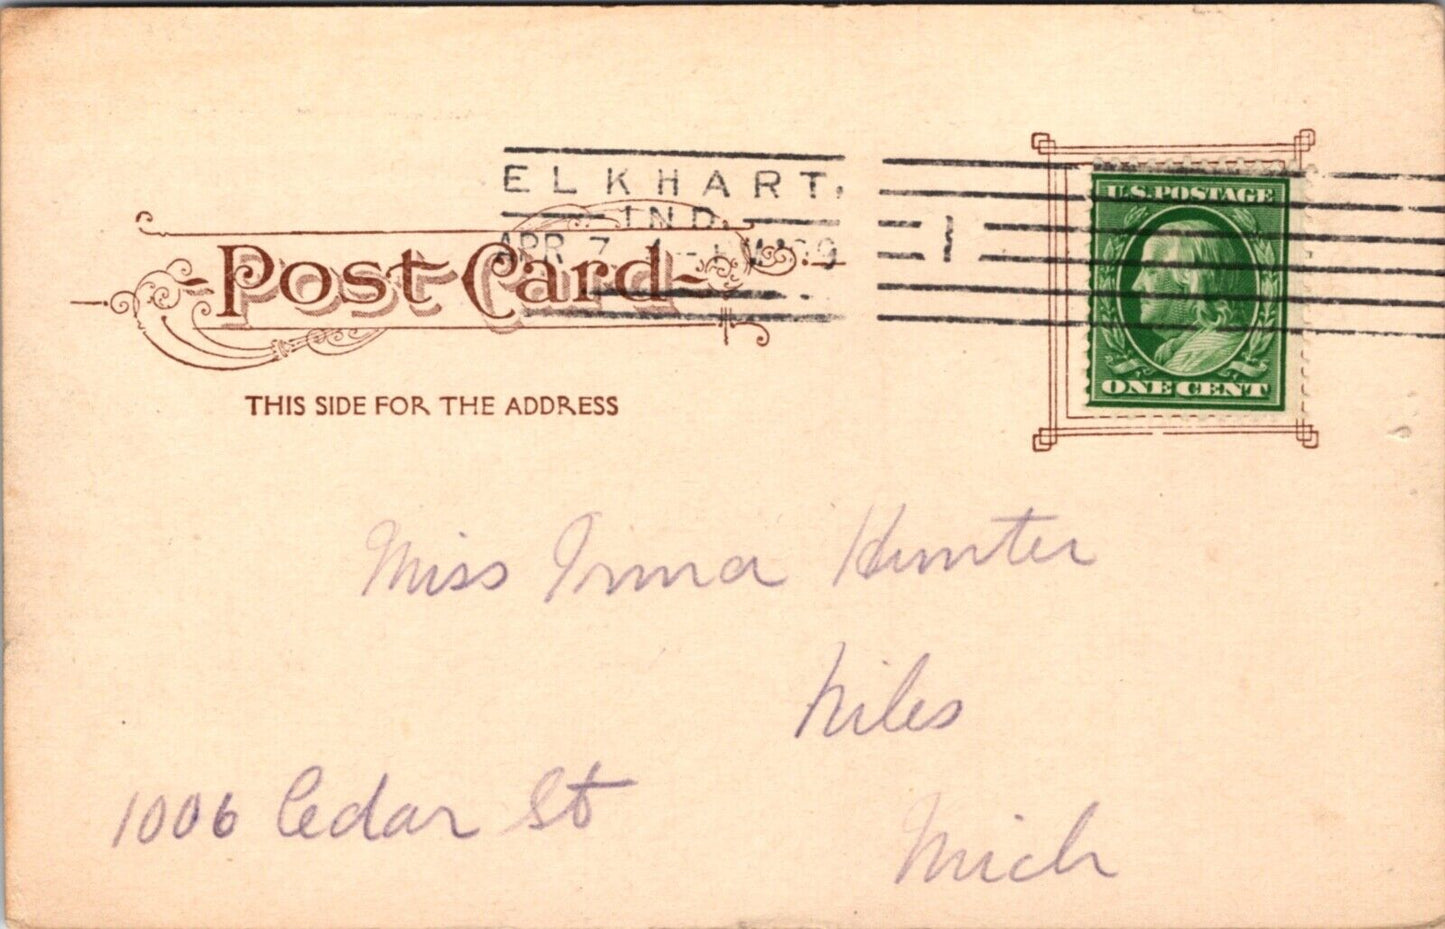 ELKHART,
IND.
APR 7
1
U.S. POSTAGE
ONE CENT
Post Card
THIS SIDE FOR THE ADDRESS
Miss Irma Hunter
Niles
1006 Cedar St
Mich